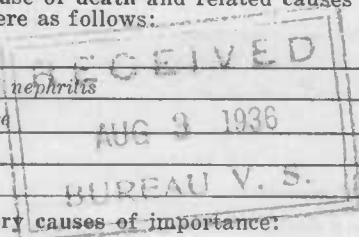 use of death and related causes
ere as follows:
RECEIVED
nephritis
AUG 3 1936
BUREAU V. S.
ry causes of importance: